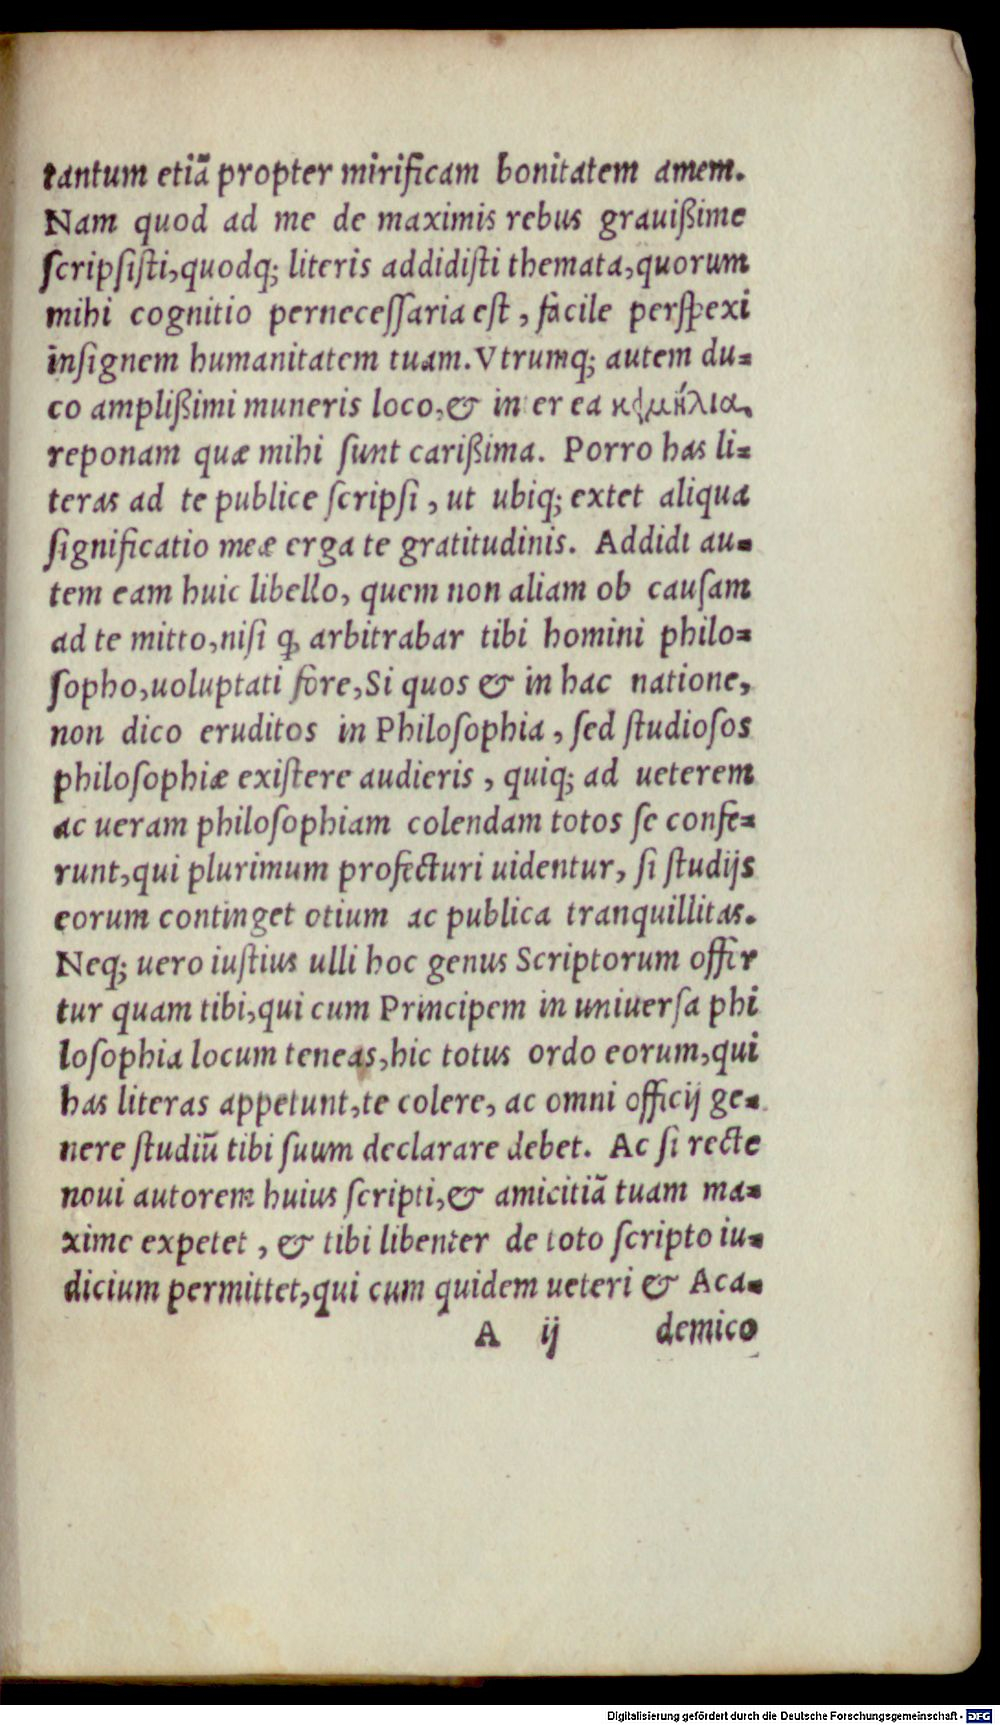 tantum etiã propter mirificam bonitatem amem.
Nam quod ad me de maximis rebus grauißime
ſcripſiſti, quodq; literis addidiſti themata, quorum
mihi cognitio perneceſſaria eſt, facile perſpexi
inſignem humanitatem tuam. Vtrumq; autem du-
co amplißimi muneris loco, & in er ea κειμήλια,
reponam quæ mihi ſunt carißima. Porro has li-
teras ad te publice ſcripſi, ut ubiq; extet aliqua
ſignificatio meæ erga te gratitudinis. Addidi au-
tem eam huic libello, quem non aliam ob cauſam
ad te mitto, niſi ꝙ arbitrabar tibi homini philo-
ſopho, uoluptati fore, Si quos & in hac natione,
non dico eruditos in Philoſophia, ſed ſtudioſos
philoſophiæ exiſtere audieris, quiq; ad ueterem
ac ueram philoſophiam colendam totos ſe confe-
runt, qui plurimum profecturi uidentur, ſi ſtudijs
eorum continget otium ac publica tranquillitas.
Neq; uero iuſtius ulli hoc genus Scriptorum offer
tur quam tibi, qui cum Principem in uniuerſa phi
loſophia locum teneas, hic totus ordo eorum, qui
has literas appetunt, te colere, ac omni officij ge-
nere ſtudiũ tibi ſuum declarare debet. Ac ſi recte
noui autorem huius ſcripti, & amicitiã tuam ma-
xime expetet, & tibi libenter de toto ſcripto iu-
dicium permittet, qui cum quidem ueteri & Aca-
A ij demico
Digitalisierung gefördert durch die Deutsche Forschungsgemeinschaft - DFG